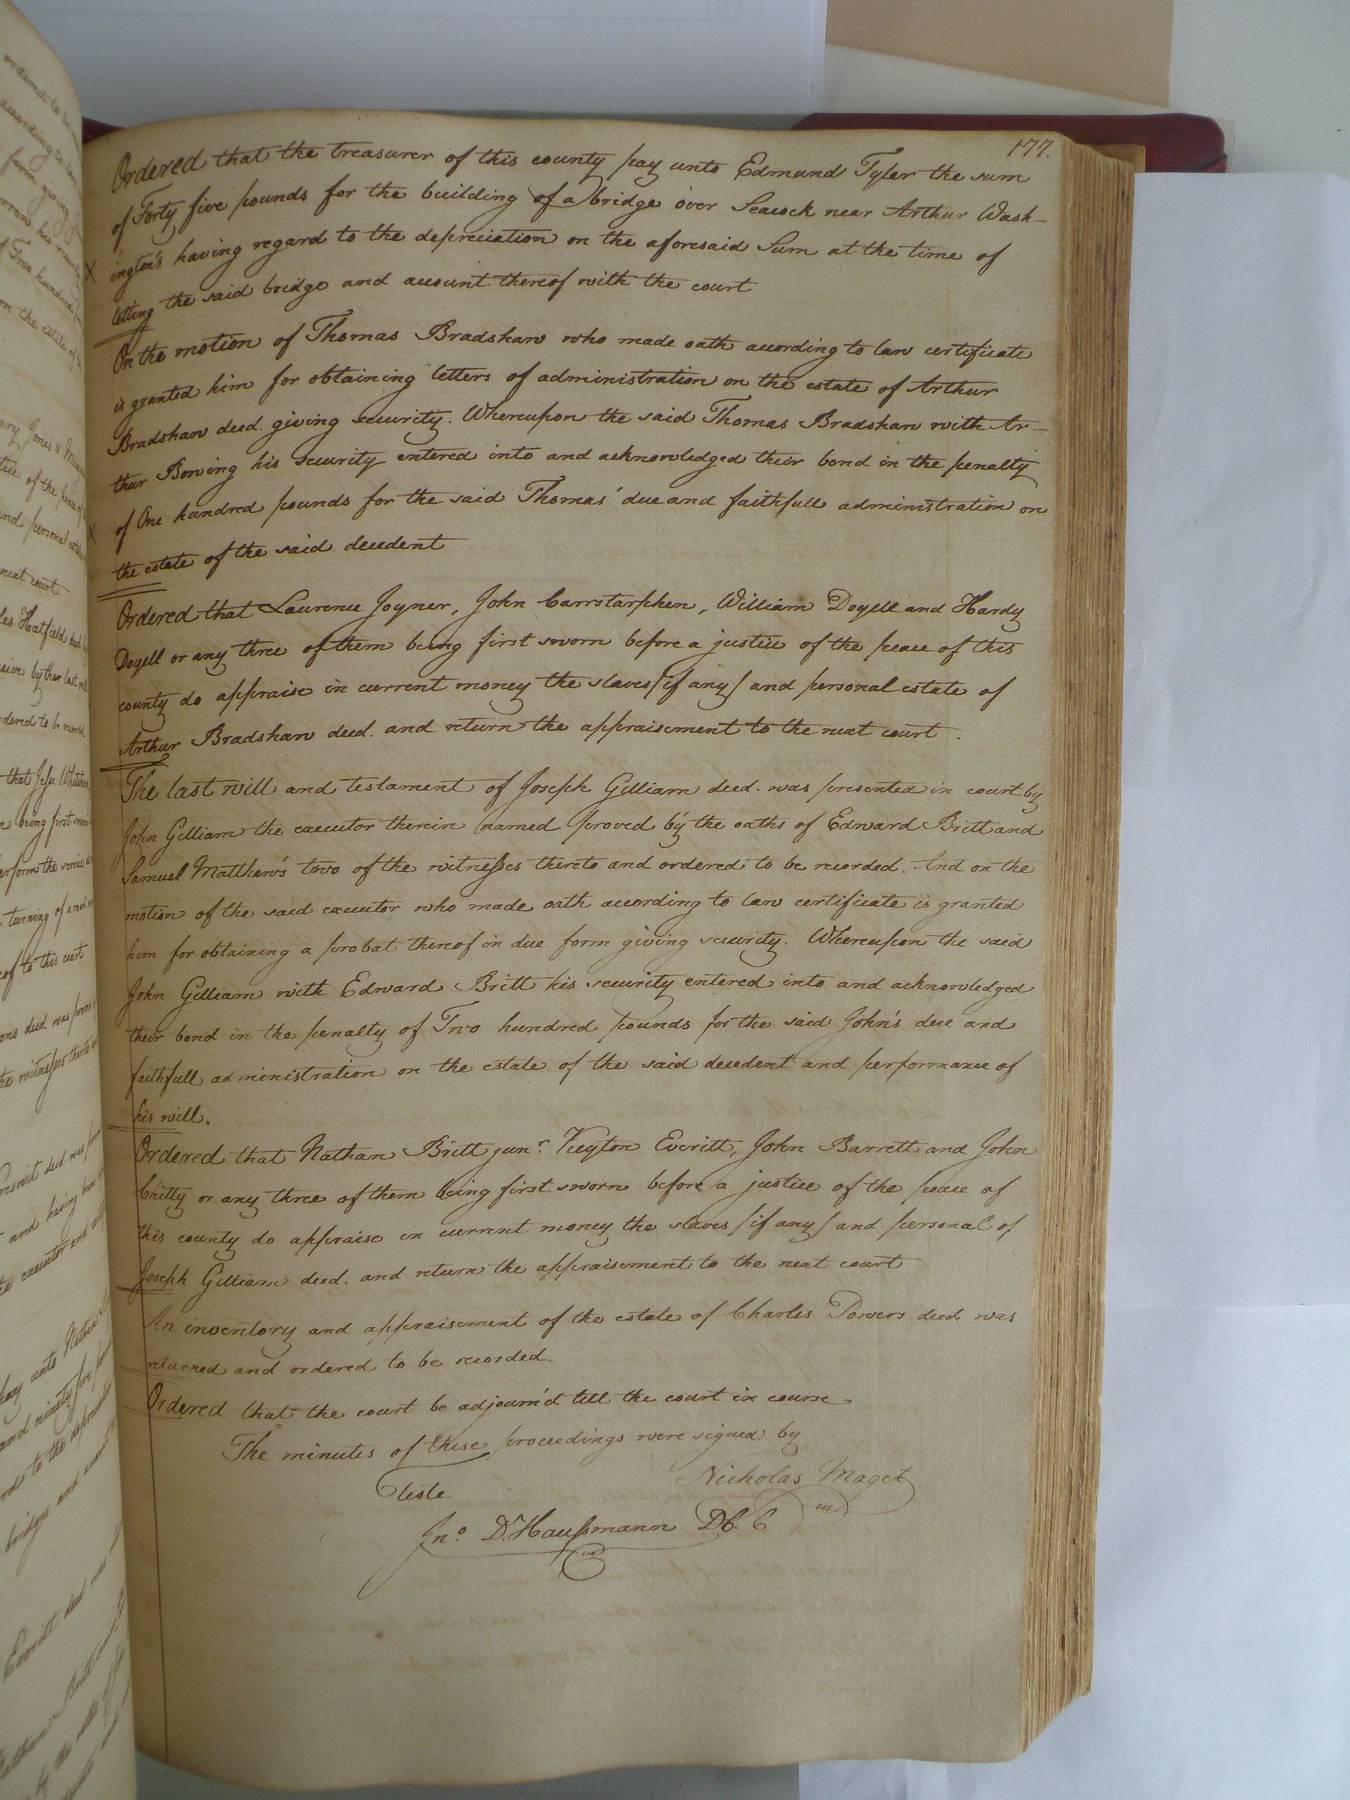 177.
Ordered that the treasurer of this county pay unto Edmund Tyler the sum
of Forty five pounds for the building of a bridge over Seacock near Arthur Wash-
ington's having regard to the depreciation on the aforesaid Sum at the time of
letting the said bridge and account thereof with the court
On the motion of Thomas Bradshaw who made oath according to law certificate
is granted him for obtaining letters of administration on the estate of Arthur
Bradshaw deed. giving security. Whereupon the said Thomas Bradshaw with Ar-
thur Bowing his security entered into and acknowledged their bond in the penalty
of One hundred pounds for the said Thomas' due and faithfull administration on
the estate of the said decedent
Ordered that Laurence Joyner, John Carrstarphen, William Doyell and Hardy
Doyell or any three of them being first sworn before a justice of the peace of this
county do appraise in current money the slaves /if any/ and personal estate of
Arthur Bradshaw deed. and return the appraisement to the next court.
The last will and testament of Joseph Gilliam deed. was presented in court by
John Gilliam the executor therein named proved by the oaths of Edward Britt and
Samuel Matthew's two of the witnesses thereto and ordered to be recorded. And on the
motion of the said executor who made oath according to law certificate is granted
him for obtaining a probat thereof in due form giving security. Whereupon the said
John Gilliam with Edward Britt his security entered into and acknowledged
their bond in the penalty of Two hundred pounds for the said John's due and
faithfull administration on the estate of the said decedent and performance of
his will.
Ordered that Nathan Britt junr. Everitt, John Barrett and John
Chitty or any three of them being first sworn before a justice of the peace of
this county do appraise in current money the slaves /if any/ and personal of
Joseph Gilliam deed. and return the appraisement to the next court
An inventory and appraisement of the estate of Charles Powers deed. was
returned and ordered to be recorded.
Ordered that the court be adjourn'd till the court in course.
The minutes of these proceedings were signed by
Nicholas Maget
Teste
Jno. D. Haussmann DC. C